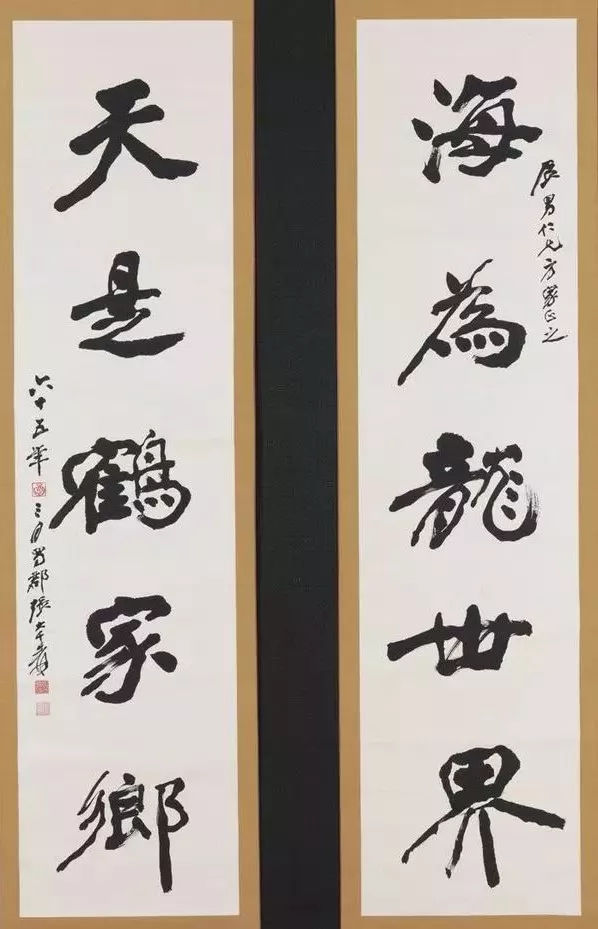 海為龍世界
仁兄方家正之
天是鶴家鄉
六十五年
三月蜀郡張大千爰